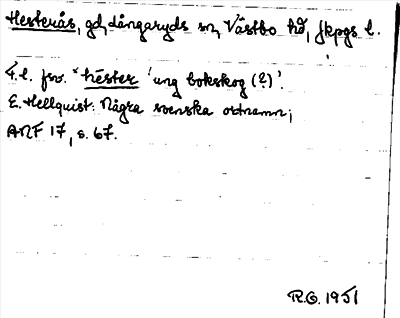 Hesterås, gd, Långaryds sn, Västbo hd, Jkpgs l.
F.l. fsv. *hēster 'ung bokskog (?)'.
E. Hellquist. Några svenska ortnamn;
ANF 17, s. 67.
R.G. 1951